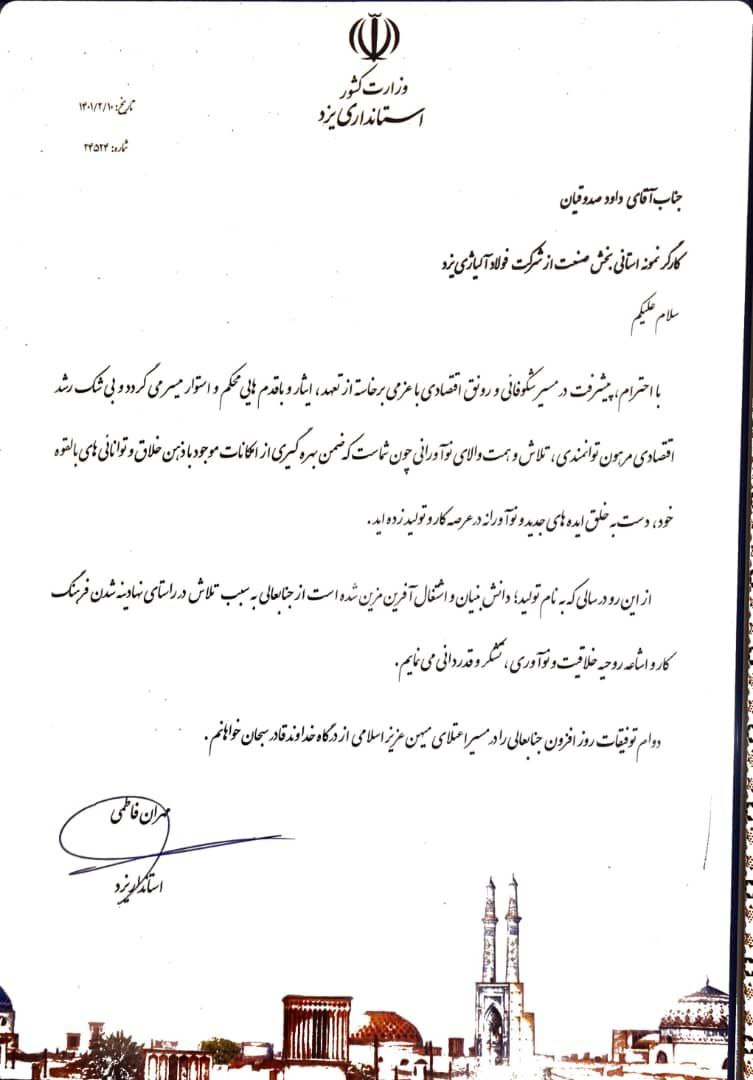 وزارت کشور
استانداری یزد
تاریخ: ۱۴۰۱/۲/۱۰
شماره: ۲۴۵۲۴
جناب آقای داود صدوقیان
کارگر نمونه استانی بخش صنعت از شرکت فولاد آلیاژی یزد
سلام علیکم
با احترام، پیشرفت در مسیر شکوفائی و رونق اقتصادی با عزمی برخاسته از تعهد، ایثار و با قدم هایی محکم و استوار میسر می گردد و بی شک رشد
اقتصادی مرهون توانمندی، تلاش و همت والای نوآورانی چون شماست که ضمن بهره گیری از امکانات موجود با ذهن خلاق و توانائی های بالقوه
خود، دست به خلق ایده های جدید و نوآورانه در عرصه کار و تولید زده اید.
از این رو در سالی که به نام تولید؛ دانش بنیان و اشتغال آفرین مزین شده است از جنابعالی به سبب تلاش در راستای نهادینه شدن فرهنگ
کار و اشاعه روحیه خلاقیت و نوآوری، تشکر و قدردانی می نمایم.
دوام توفیقات روز افزون جنابعالی را در مسیر اعتلای میهن عزیز اسلامی از درگاه خداوند قادر سبحان خواهانم.
مهران فاطمی
استاندار یزد